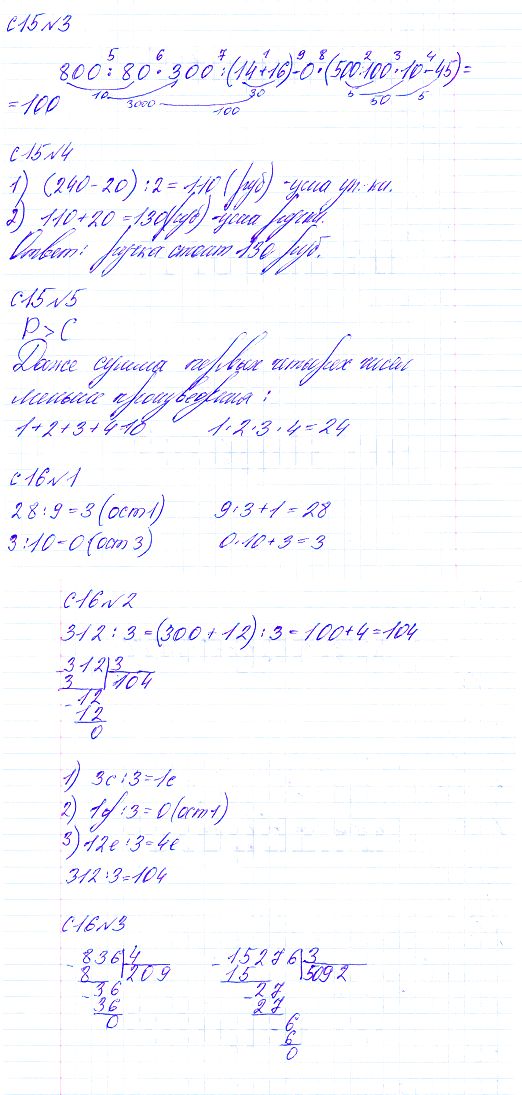 с15№3
5 6 7 1 9 8 2 3 4
800:80·300:(14+16)-0·(500:100·10-45)=
10 3000 100 30 5 50 5
=100
с15№4
1) (240-20):2=110(руб) -цена
2) 110+20=130(руб) -цена ручки.
Ответ: ручка стоит 130 руб.
с15№5
P>C
Даже сумма первых четырех чисел
меньше произведения:
1+2+3+4 10 1·2·3·4=24
с16№1
28:9=3(ост1) 9·3+1=28
3:10=0(ост3) 0·10+3=3
с16№2
312:3=(300+12):3=100+4=104
-312 3
3 104
-12
12
0
1) 3с:3=1с
2) 1д:3=0(ост1)
3) 12е:3=4е
312:3=104
с16№3
-836 4 -15276 3
8 209 15 5092
-36 -27
36 27
0 -6
6
0